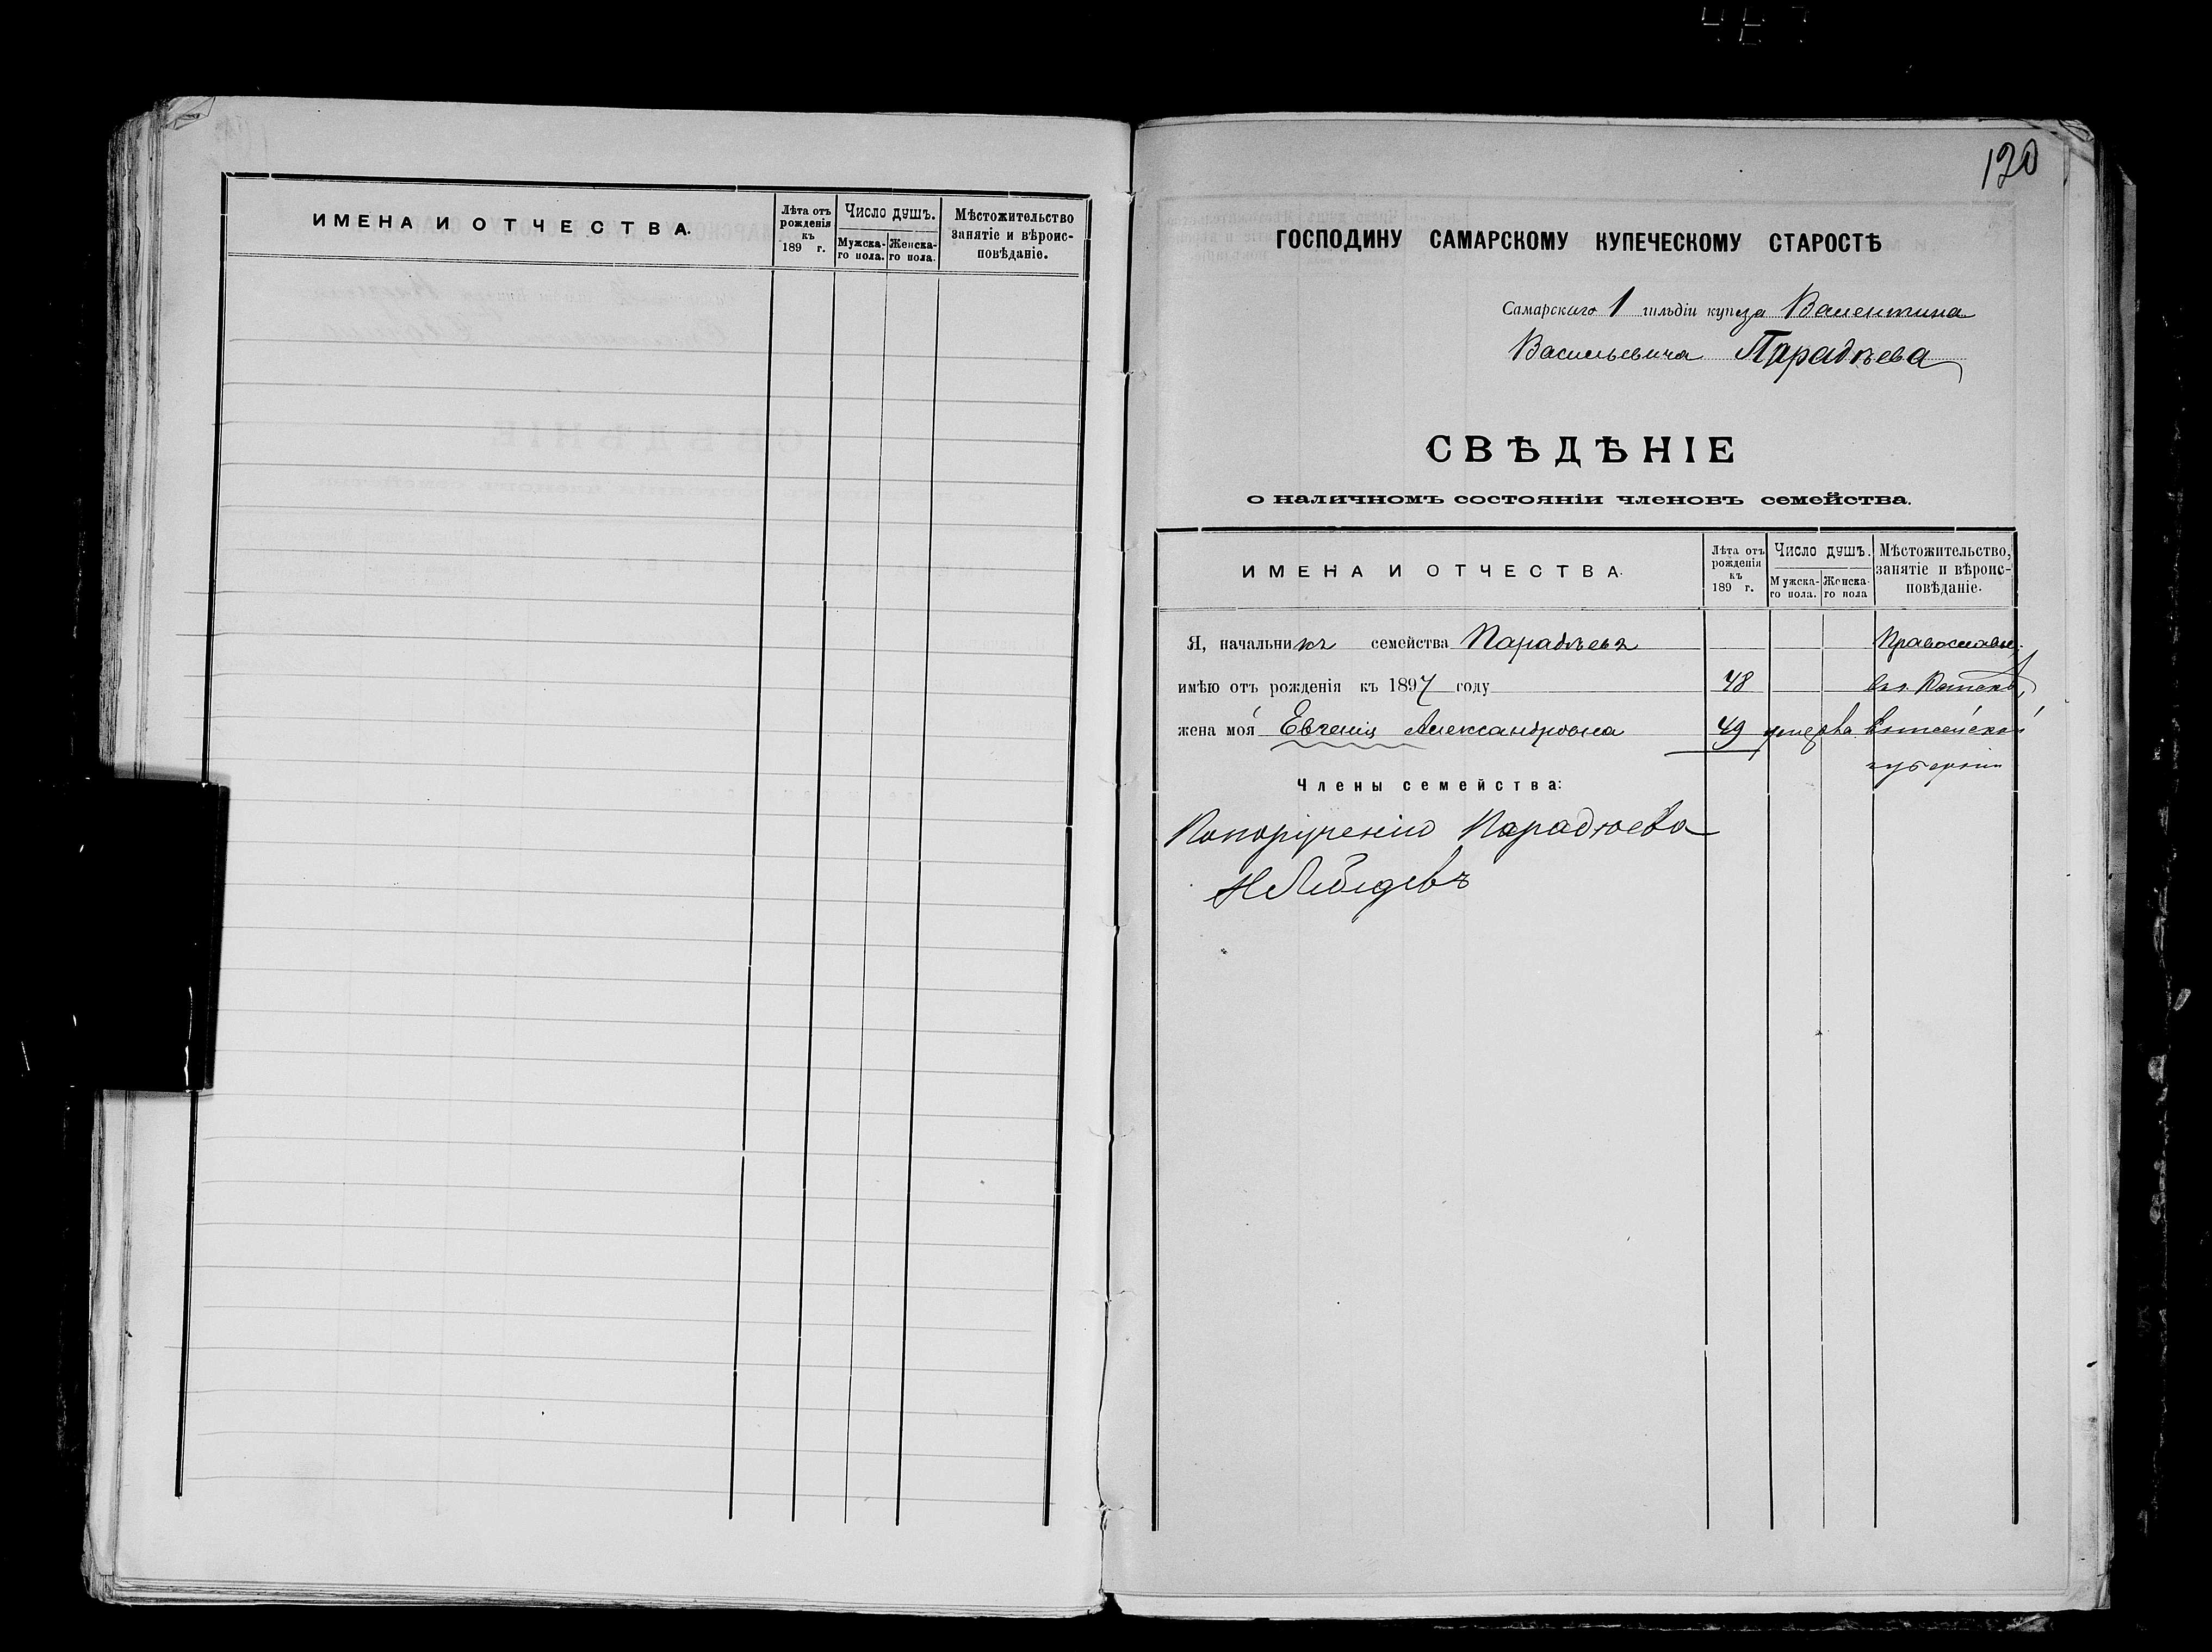 ИМЕНА И ОТЧЕСТВА.
Лѣта отъ рожденія къ 189 г.
Число душъ.
Мужска-го пола.
Женска-го пола.
Мѣстожительство занятіе и вѣроис-повѣданіе.
120
ГОСПОДИНУ САМАРСКОМУ КУПЕЧЕСКОМУ СТАРОСТѢ
Самарскаго 1 гильдіи купца Валентина
Васильевича Парадѣева
СВѢДѢНІЕ
о наличномъ состояніи членовъ семейства.
ИМЕНА И ОТЧЕСТВА.
Лѣта отъ рожденія къ 189 г.
Число душъ.
Мужска-го пола.
Женска-го пола
Мѣстожительство, занятіе и вѣроис-повѣданіе.
Я, начальникъ семейства Парадѣевъ Православн.
имѣю отъ рожденія къ 1897 году 48
жена моя Евгенія Александровна 49 умерла
губерніи
Члены семейства:
По порученію Парадѣева
Н Лебедевъ